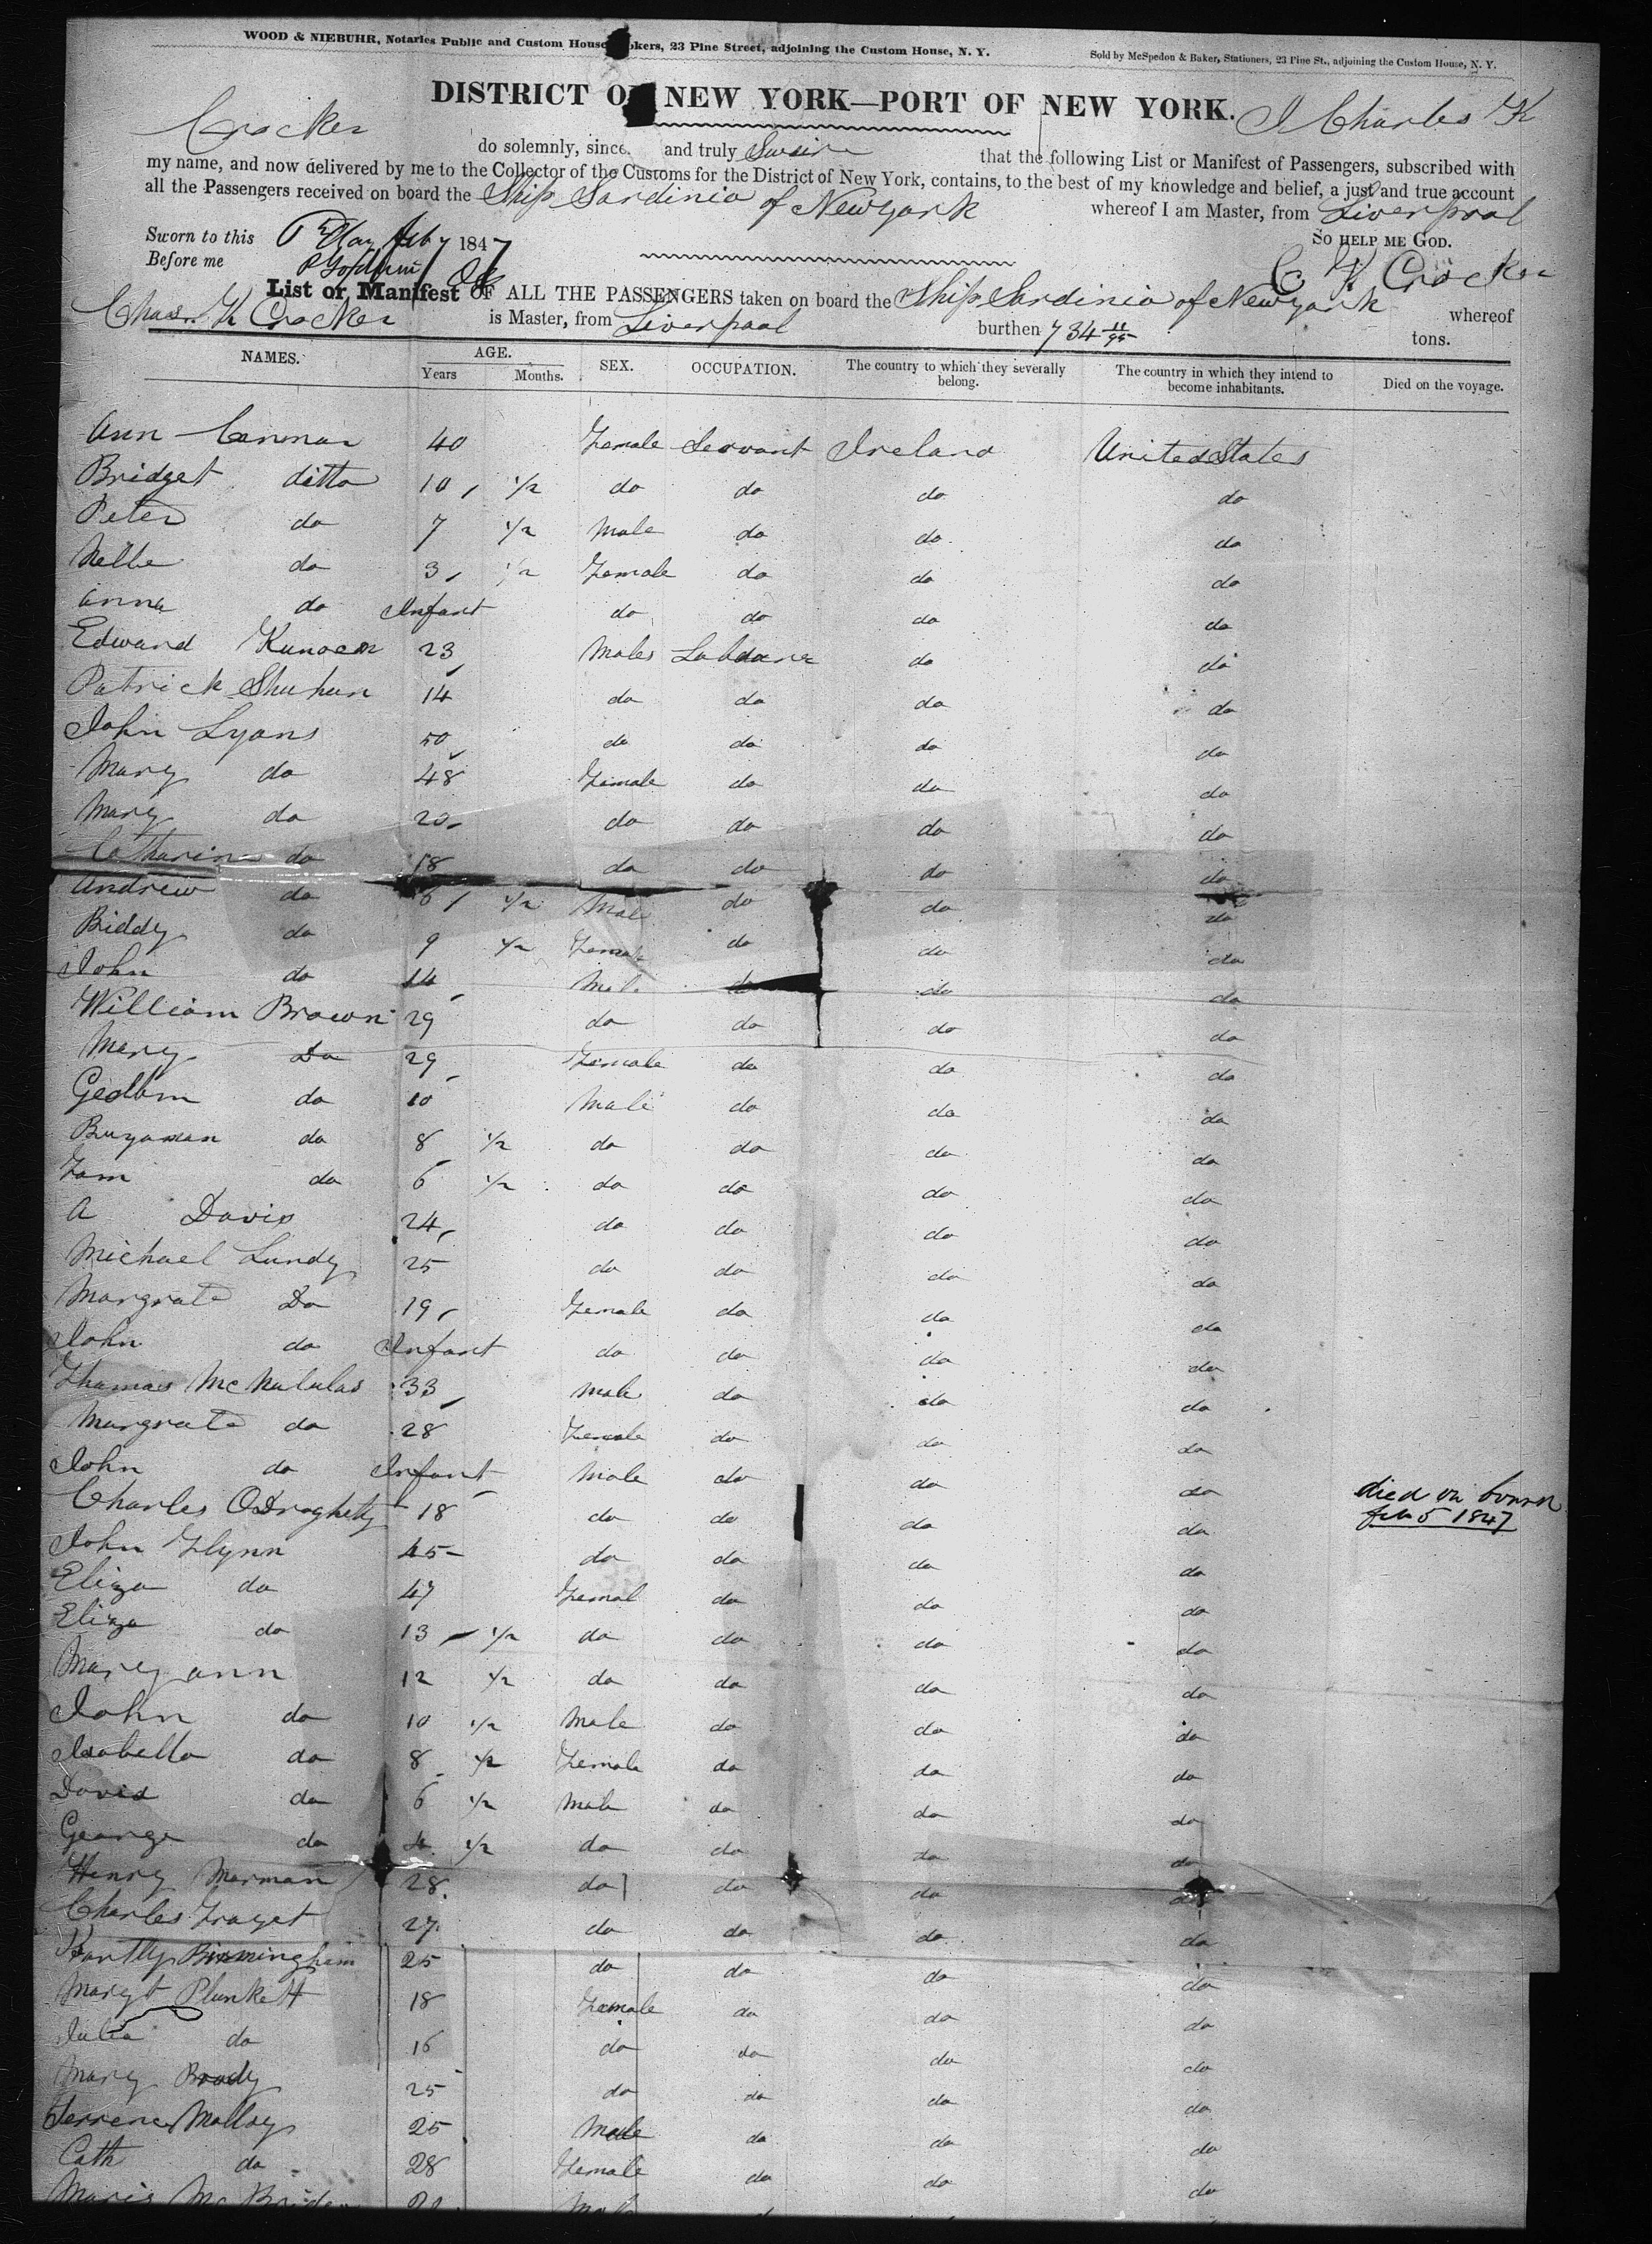 WOOD & NIEBUHR, Notaries Public and Custom House okers, 23 Pine Street, adjoining the Custom House, N. Y.
Sold by McSpedon & Baker, Stationers, 23 Pine St., adjoining the Custom House, N. Y.
DISTRICT O NEW YORK—PORT OF NEW YORK. I Charles K
Crocker do solemnly, since and truly that the following List or Manifest of Passengers, subscribed with
my name, and now delivered by me to the Collector of the Customs for the District of New York, contains, to the best of my knowledge and belief, a just and true account
all the Passengers received on board the Ship Sardinia of New York whereof I am Master, from Liverpool
Sworn to this 1847 SO HELP ME GOD.
Before me C K Crocker
List or Manifest OF ALL THE PASSENGERS taken on board the Ship Sardinia of New York whereof
Chas. K Crocker is Master, from Liverpool burthen 734 11/95 tons.
NAMES. AGE. Years Months. SEX. OCCUPATION. The country to which they severally belong. The country in which they intend to become inhabitants. Died on the voyage.
Ann 40 Female Servant Ireland United States
Bridget ditto 10 1/2 do do do do
Peter do 7 1/2 Male do do do
do 3 1/2 Female do do do
Anna do Infant do do do do
Edward 23 Males do do
Patrick Shuhan 14 do do do do
John Lyons 50 do do do do
Mary do 48 Female do do do
Mary do 20 do do do do
Catharine do 18 do do do do
Andrew do 6 1/2 Male do do do
Biddy do 9 1/2 Female do do do
John do 14 Male do do do
William Brown 29 do do do do
Mary Do 29 Female do do do
do 10 Male do do do
do 8 1/2 do do do do
do 6 1/2 do do do do
A Davis 24 do do do do
Michael Lundy 25 do do do do
Margrate Do 19 Female do do do
John do Infant do do do do
Thomas 33 Male do do do
Margrate do 28 Female do do do
John do Infant Male do do do died on board feb 5 1847
Charles ODroghetty 18 do do do do
John Flynn 45 do do do do
Eliza do 47 Femal do do do
Eliza do 13 1/2 do do do do
Mary ann 12 1/2 do do do do
John do 10 1/2 Male do do do
Isabella do 8 1/2 Female do do do
David do 6 1/2 Male do do do
George do 4 1/2 do do do do
Henry Marman 28 do do do do
Charles 27 do do do do
Birmingham 25 do do do do
Margt Plunkett 18 Female do do do
Julia do 16 do do do do
Mary Brady 25 do do do do
Terrence Molloy 25 Male do do do
Cath do 28 Female do do do